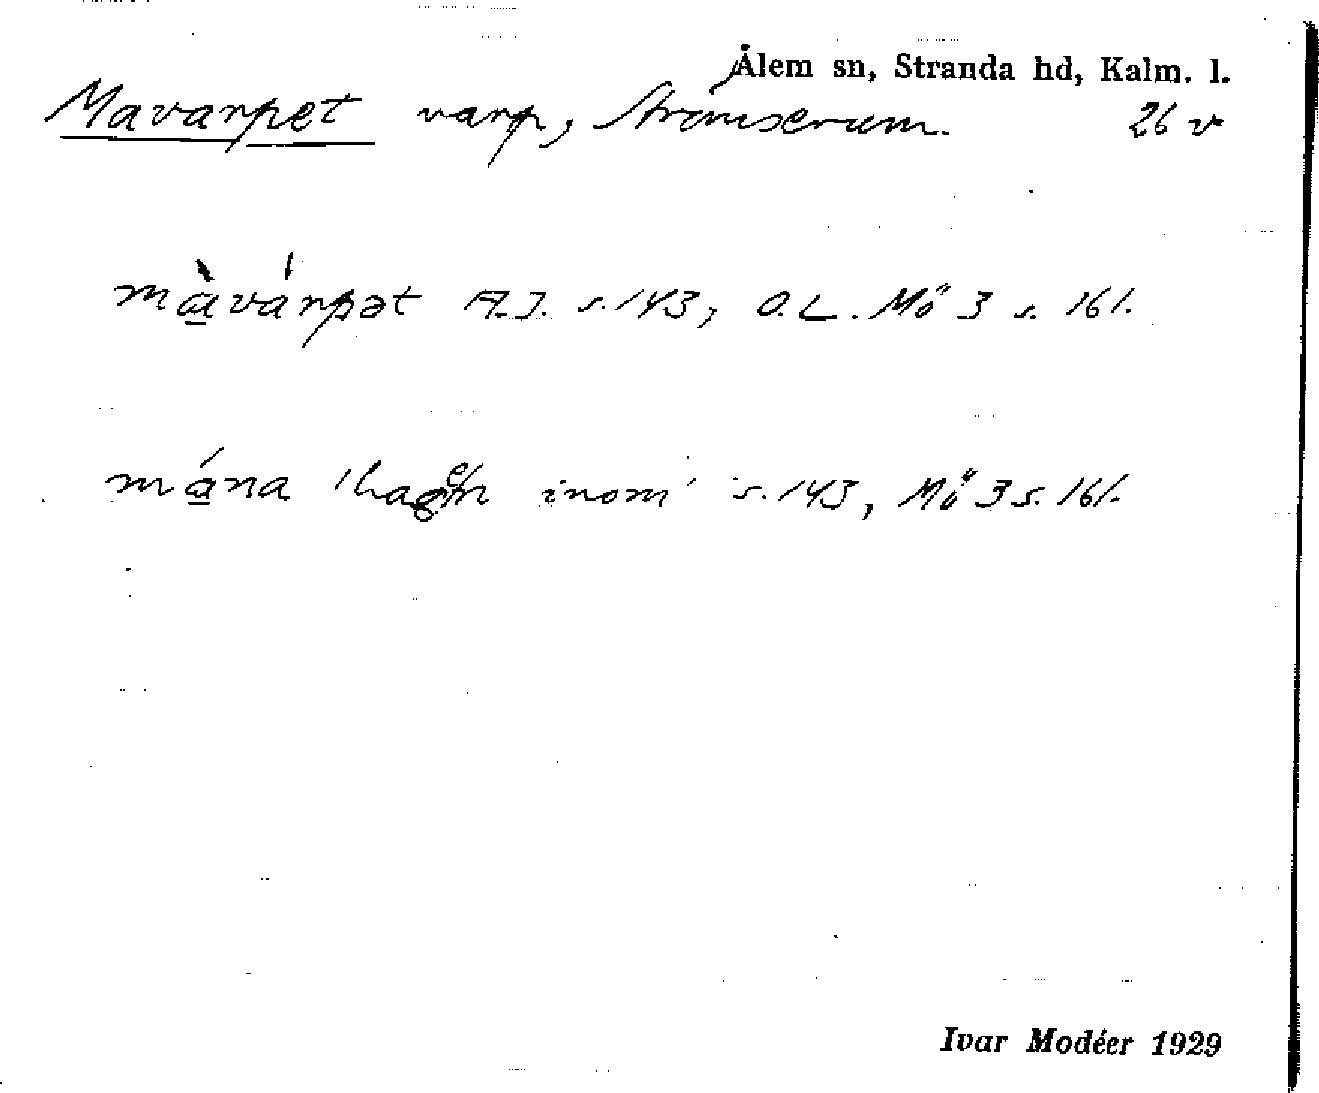 Ålem sn, Stranda hd, Kalm. l.
Mavarpet varp, Strömserum. 26 v
màvárpət A.J. s. 143, O.L. Mö 3 s. 161.
mána 'hagen inom' s. 143, Mö 3 s. 161.
Ivar Modéer 1929